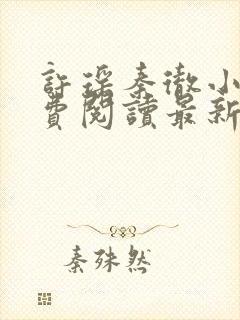 許瑤秦徹小
費閱讀最新
秦殊然